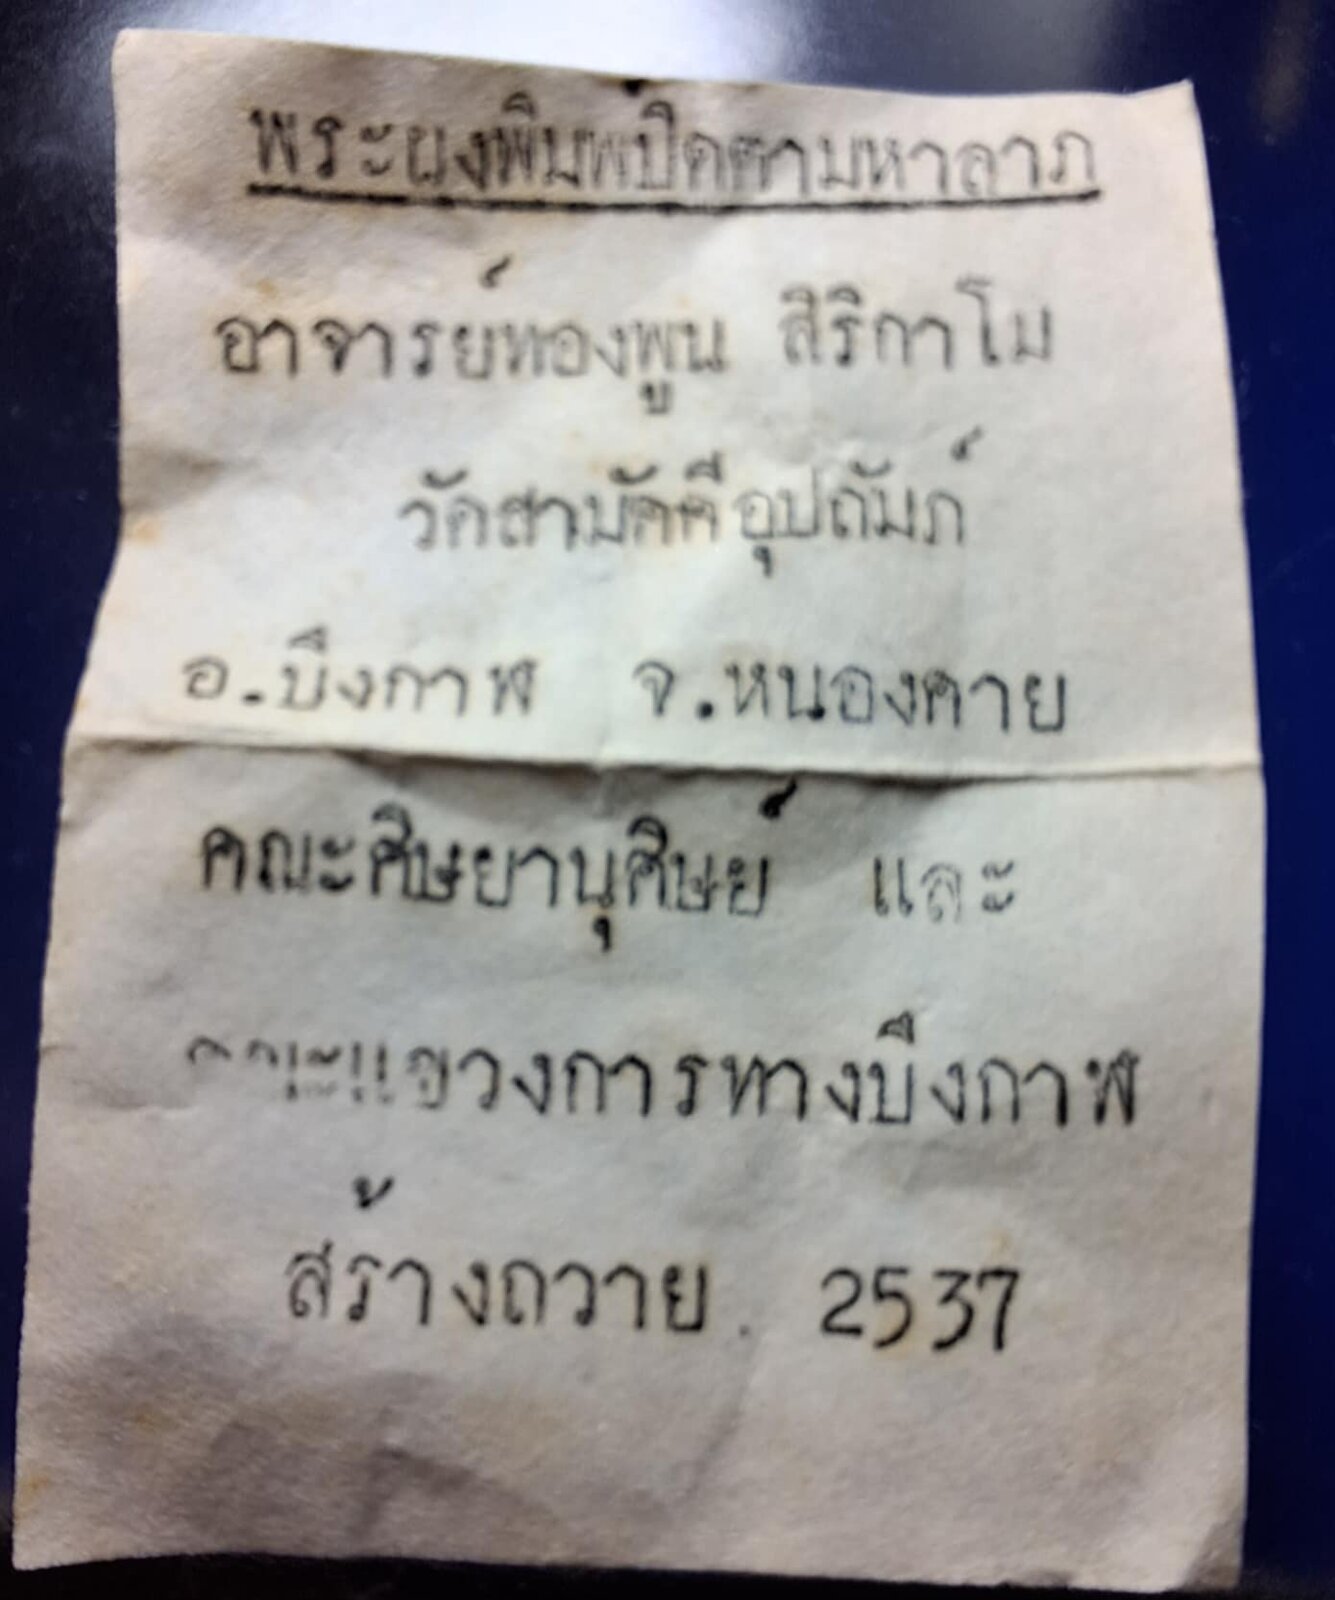 พระผงพิมพ์ปิดตามหาลาภ
อาจารย์ทองพูน สิริกาโม
วัดสามัคคีอุปถัมภ์
อ.บึงกาฬ จ.หนองคาย
คณะศิษยานุศิษย์ และ
คณะแขวงการทางบึงกาฬ
สร้างถวาย. 2537